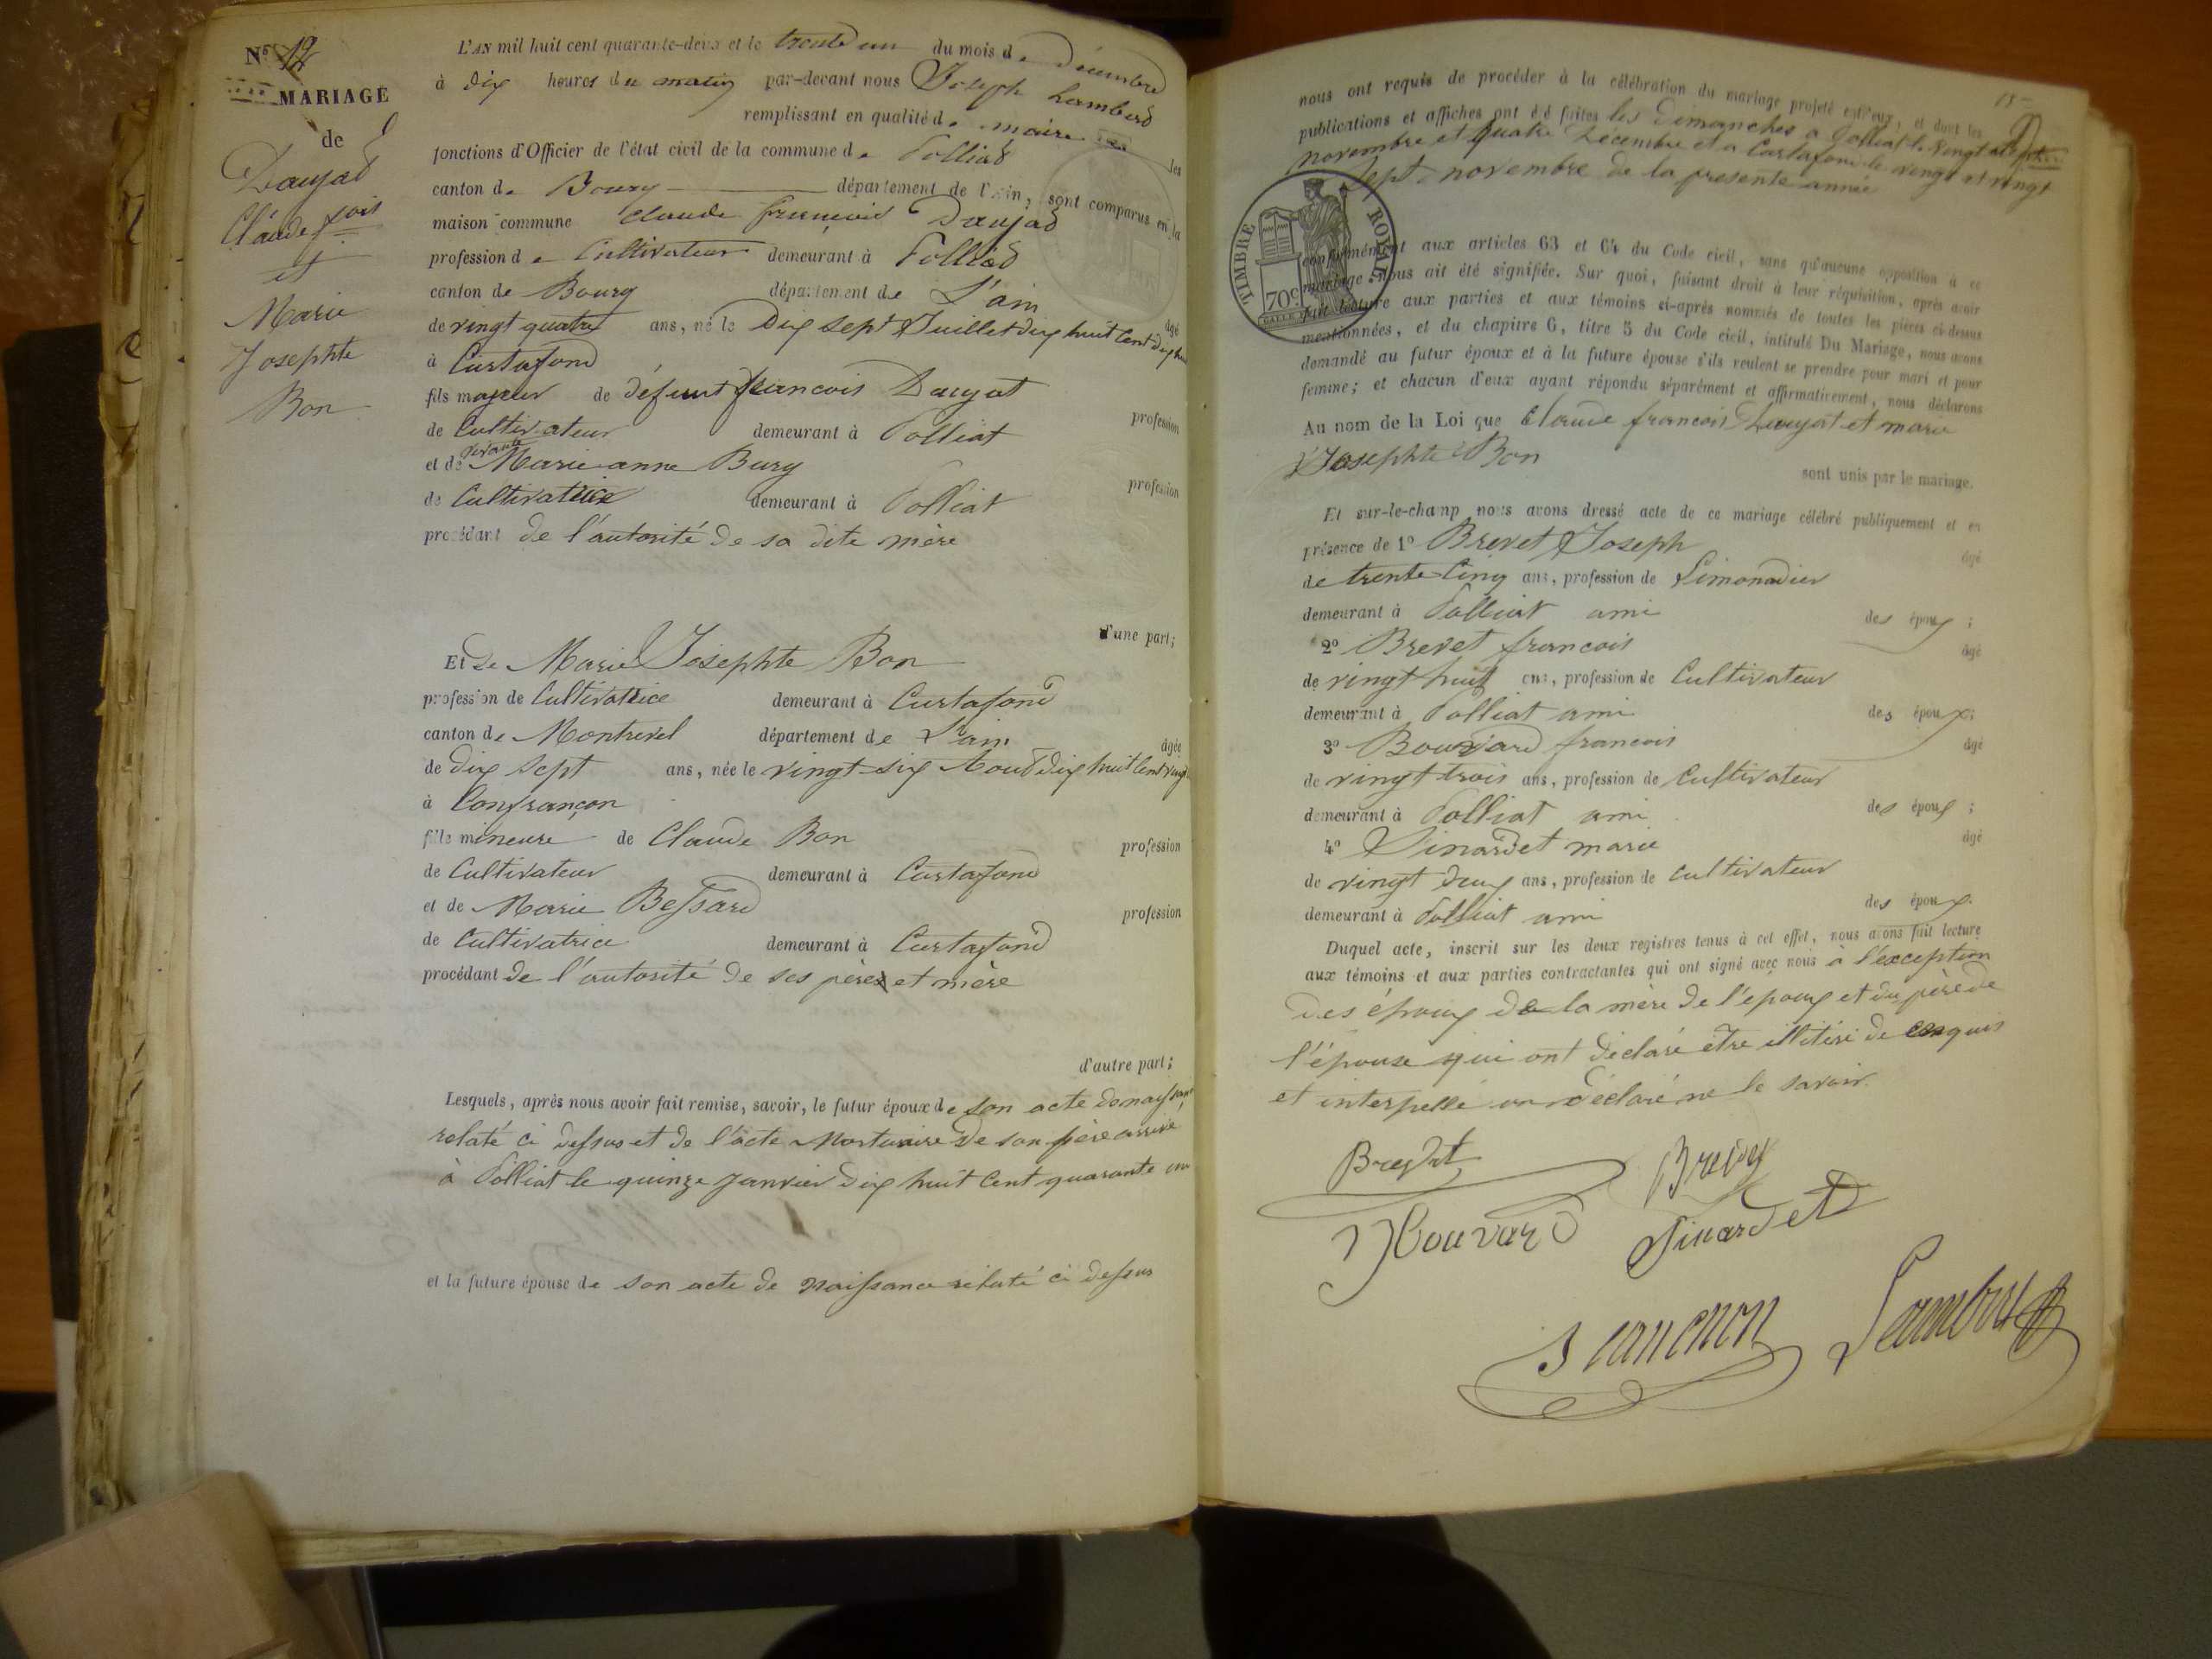 N° 12
MARIAGE
de
Daujat
Claude fçois
et
Marie
Josephte
Bon
L'AN mil huit cent quarante-deux et le trente un du mois de Décembre
à dix heures du matin par-devant nous Joseph Lambert
remplissant en qualité de maire les
fonctions d'Officier de l'état civil de la commune de Polliat
canton de Bourg département de l'Ain, sont comparus en la
maison commune Claude françois Daujat
profession de Cultivateur demeurant à Polliat
canton de Bourg département de L'ain
âgé
de vingt quatre ans, né le Dix sept Juillet dix huit Cent dix huit
à Curtafond
fils majeur de défunt francois Daujat
profession
de Cultivateur demeurant à Polliat
et de vivante Marie anne Bury
profession
de Cultivatrice demeurant à Polliat
procédant de l'autorité de sa dite mère
d'une part;
Et de Marie Josephte Bon
profession de Cultivatrice demeurant à Curtafond
canton de Montrevel département de L'ain
âgée
de dix sept ans, née le vingt six Aout dix huit Cent vingt
à Confrançon
fille mineure de Claude Bon
profession
de Cultivateur demeurant à Curtafond
et de Marie Bessard
profession
de Cultivatrice demeurant à Curtafond
procédant de l'autorité de ses père et mère
d'autre part;
Lesquels, après nous avoir fait remise, savoir, le futur époux de son acte de naissance
relaté ci dessus et de l'acte Mortuaire de son père arrivé
à Polliat le quinze Janvier dix huit Cent quarante un
et la future épouse de son acte de naissance relaté ci dessus
nous ont requis de procéder à la célébration du mariage projeté entr'eux, et dont les
publications et affiches ont été faites les Dimanches a Polliat le vingt sept
novembre et quatre Décembre et a Curtafond le vingt et vingt
sept novembre de la presente année
TIMBRE ROYAL
70c
conformément aux articles 63 et 64 du Code civil, sans qu'aucune opposition à ce
mariage nous ait été signifiée. Sur quoi, faisant droit à leur réquisition, après avoir
fait lecture aux parties et aux témoins ci-après nommés de toutes les pièces ci-dessus
mentionnées, et du chapitre 6, titre 5 du Code civil, intitulé Du Mariage, nous avons
demandé au futur époux et à la future épouse s'ils veulent se prendre pour mari et pour
femme; et chacun d'eux ayant répondu séparément et affirmativement, nous déclarons
Au nom de la Loi que Claude francois Daujat et marie
Josephte Bon
sont unis par le mariage.
Et sur-le-champ nous avons dressé acte de ce mariage célébré publiquement et en
présence de 1° Brevet Joseph
âgé
de trente Cinq ans, profession de Limonadier
demeurant à Polliat ami des époux ;
2° Brevet francois
âgé
de vingt huit ans, profession de Cultivateur
demeurant à Polliat ami des époux;
3° Bouvard francois
âgé
de vingt trois ans, profession de Cultivateur
demeurant à Polliat ami des époux ;
4° Pinardet marie
âgé
de vingt deux ans, profession de Cultivateur
demeurant à Polliat ami des époux.
Duquel acte, inscrit sur les deux registres tenus à cet effet, nous avons fait lecture
aux témoins et aux parties contractantes qui ont signé avec nous à l'exception
des époux de la mère de l'epoux et du père de
l'épouse qui ont déclaré être illitéré de ce requis
et interpellé ont déclaré ne le savoir.
Brevet
Bouvard Pinardet
Lambert